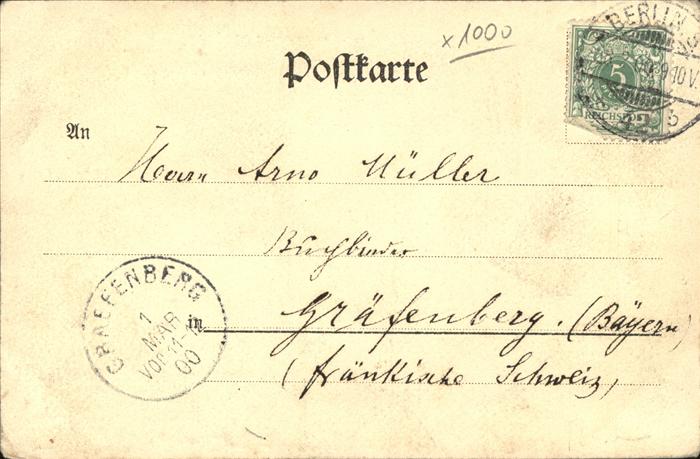 x1000
Postkarte
BERLIN
5
REICHSPOST
An
Herrn Arno Müller
Buchbinder
GRAEFENBERG
1
MAR
Vor 11-
00
in Gräfenberg. (Bayern)
(fränkische Schweiz)